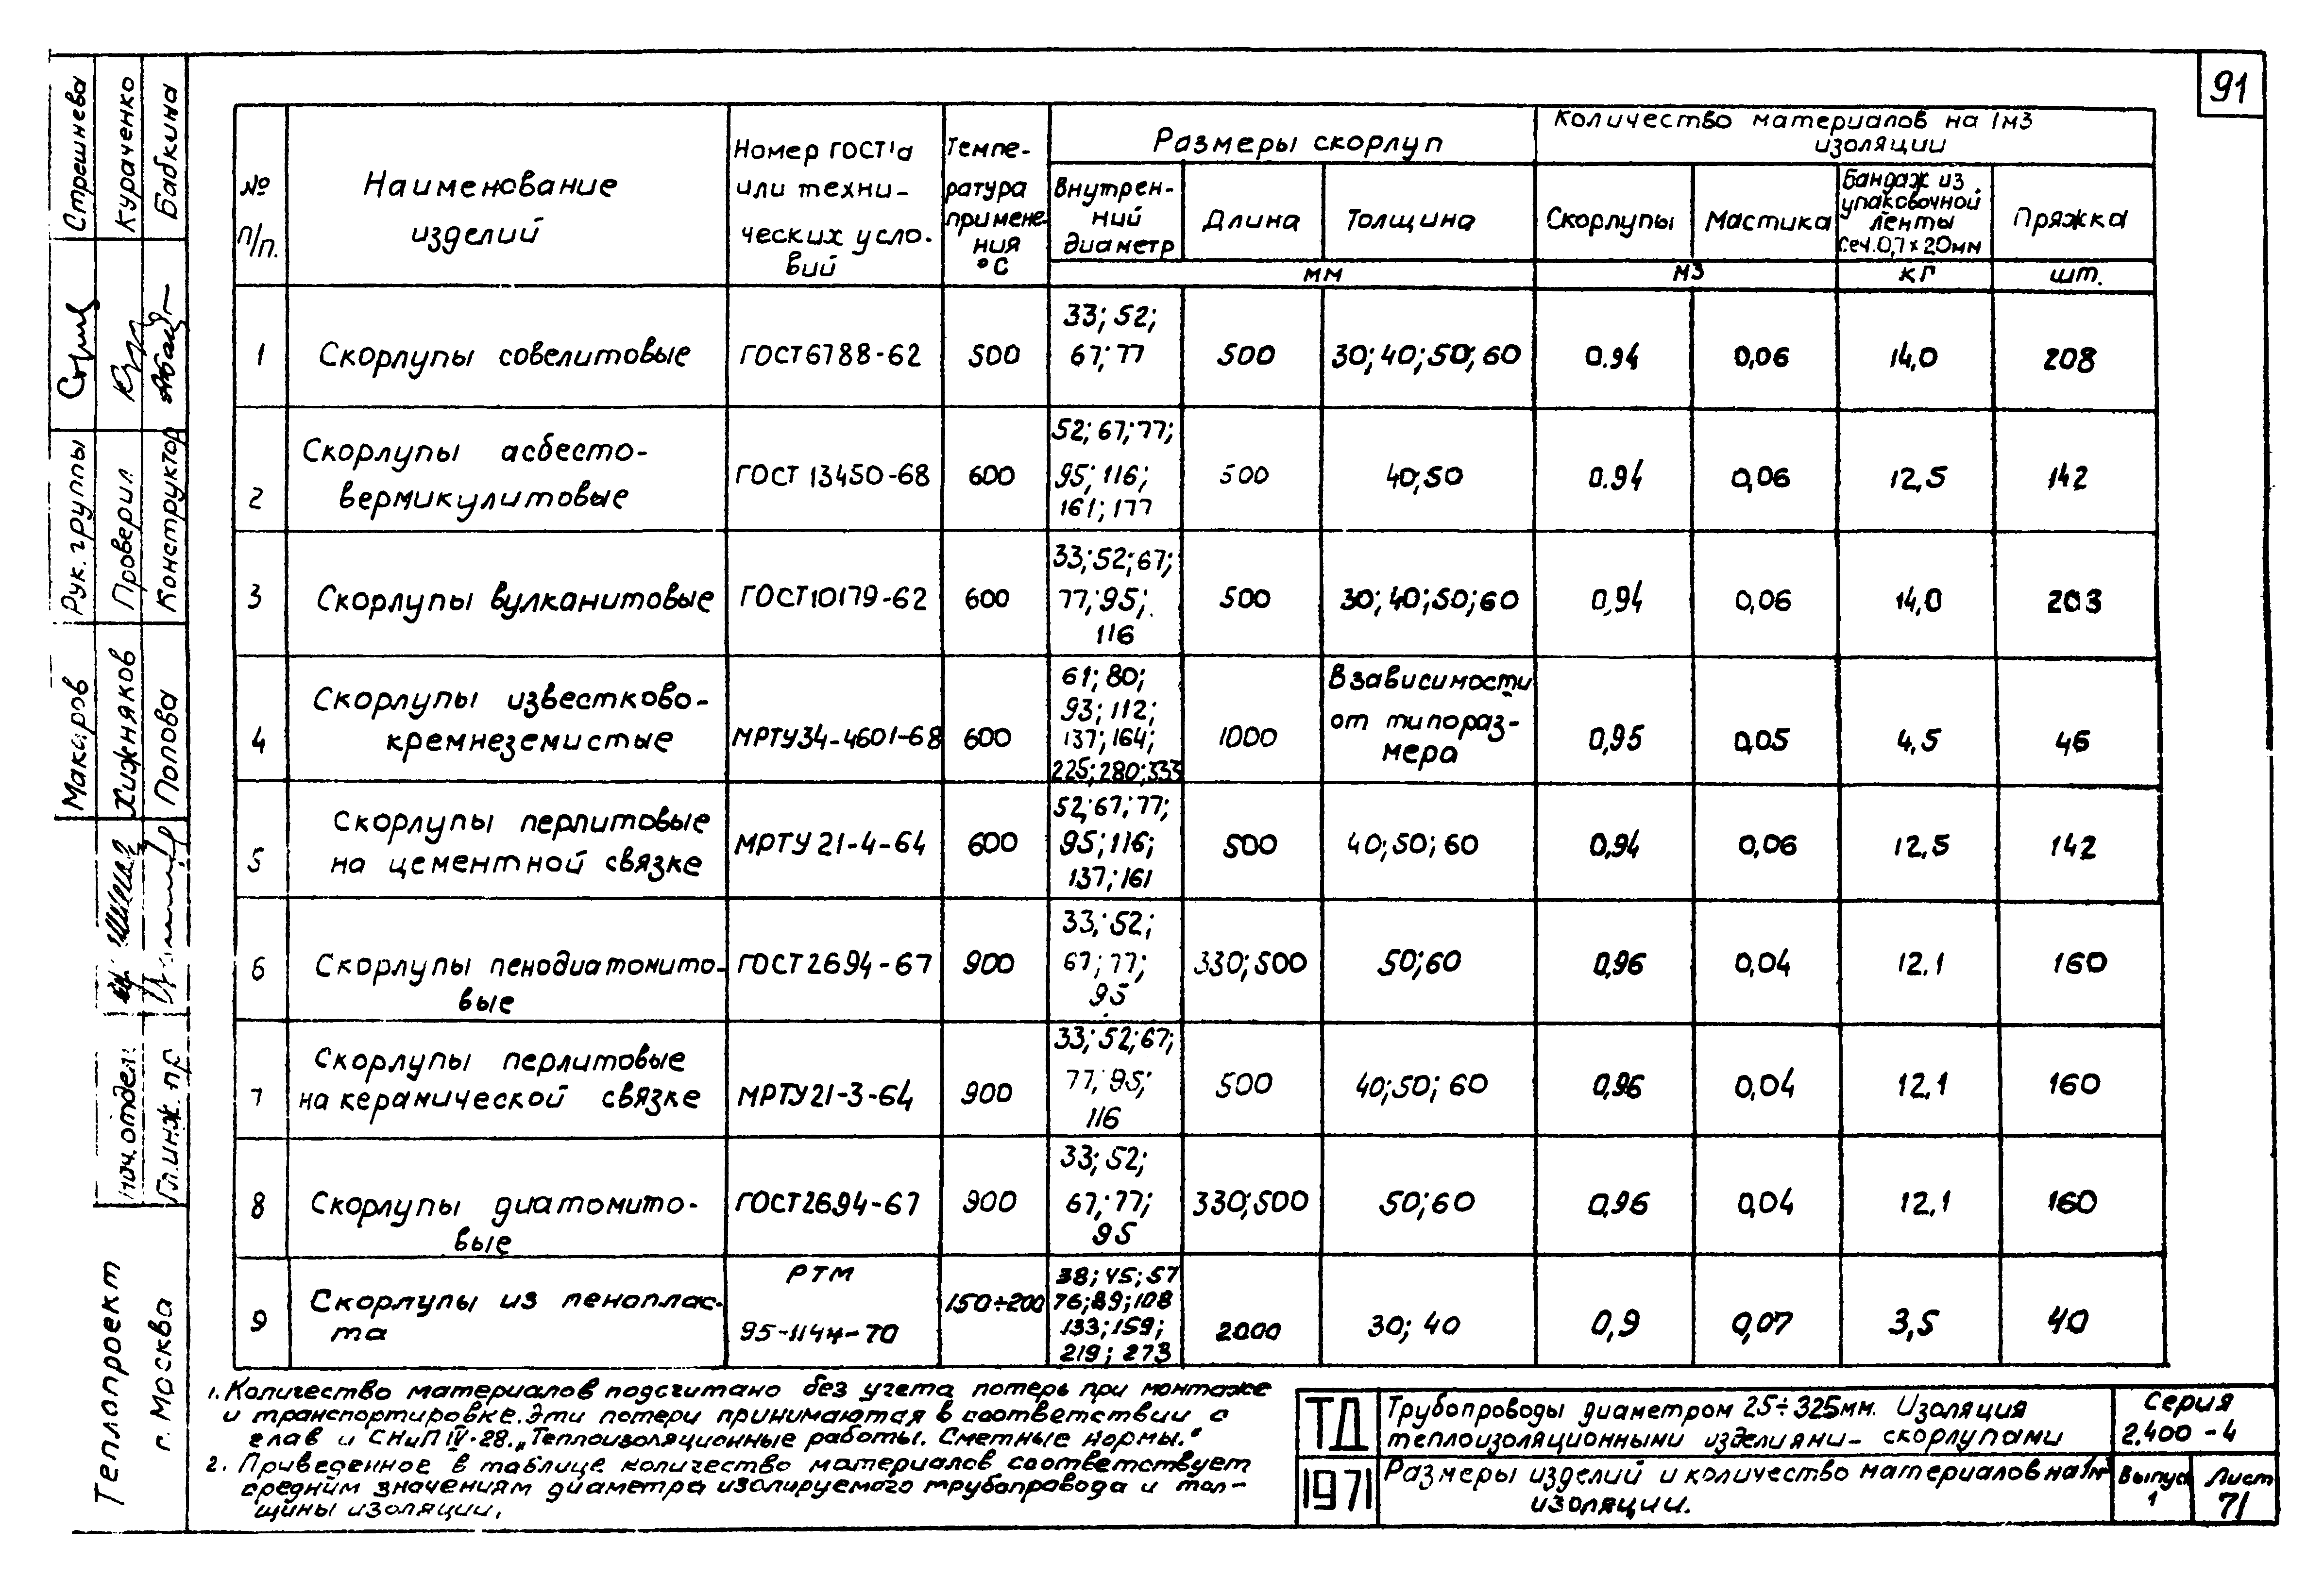 91
№ п/п.
Наименование изделий
Номер ГОСТ'а или техни- ческих усло- вий
Темпе- ратура примене- ния °С
Размеры скорлуп
Внутрен- ний диаметр
Длина
Толщина
мм
Количество материалов на 1м3 изоляции
Скорлупы
Мастика
Бандаж из упаковочной ленты сеч. 0,7×20мм
Пряжка
м3
кг
шт.
1 Скорлупы совелитовые ГОСТ 6788-62 500 33; 52; 67; 77 500 30; 40; 50; 60 0.94 0,06 14,0 208
2 Скорлупы асбесто- вермикулитовые ГОСТ 13450-68 600 52; 67; 77; 95; 116; 161; 177 500 40; 50 0.94 0,06 12,5 142
3 Скорлупы вулканитовые ГОСТ 10179-62 600 33; 52; 67; 77; 95; 116 500 30; 40; 50; 60 0,94 0,06 14,0 203
4 Скорлупы известково- кремнеземистые МРТУ34-4601-68 600 61; 80; 93; 112; 137; 164; 225; 280; 333 1000 В зависимости от типораз- мера 0,95 0,05 4,5 46
5 Скорлупы перлитовые на цементной связке МРТУ 21-4-64 600 52; 67; 77; 95; 116; 137; 161 500 40; 50; 60 0,94 0,06 12,5 142
6 Скорлупы пенодиатомито- вые ГОСТ 2694-67 900 33; 52; 67; 77; 95 330; 500 50; 60 0,96 0,04 12.1 160
7 Скорлупы перлитовые на керамической связке МРТУ21-3-64 900 33; 52; 67; 77; 95; 116 500 40; 50; 60 0,96 0,04 12,1 160
8 Скорлупы диатомито- вые ГОСТ 2694-67 900 33; 52; 67; 77; 95 330; 500 50; 60 0,96 0,04 12,1 160
9 Скорлупы из пеноплас- та РТМ 95-1144-70 150÷200 38; 45; 57 76; 89; 108 133; 159; 219; 273 2000 30; 40 0,9 0,07 3,5 40
1. Количество материалов подсчитано без учета потерь при монтаже
и транспортировке. Эти потери принимаются в соответствии с
глав и СНиП IV-28. „Теплоизоляционные работы. Сметные нормы."
2. Приведенное в таблице количество материалов соответствует
средним значениям диаметра изолируемого трубопровода и тол-
щины изоляции.
ТД
1971
Трубопроводы диаметром 25÷325мм. Изоляция
теплоизоляционными изделиями - скорлупами
Размеры изделий и количество материалов на 1м³
изоляции.
Серия
2.400-4
Выпуск
1
Лист
71
Стрешнева
Кураченко
Бабкина
Рук. группы
Проверил
Конструктор
Макаров
Хижняков
Попова
нач. отдела
Гл. инж. пр
Теплопроект
г. Москва